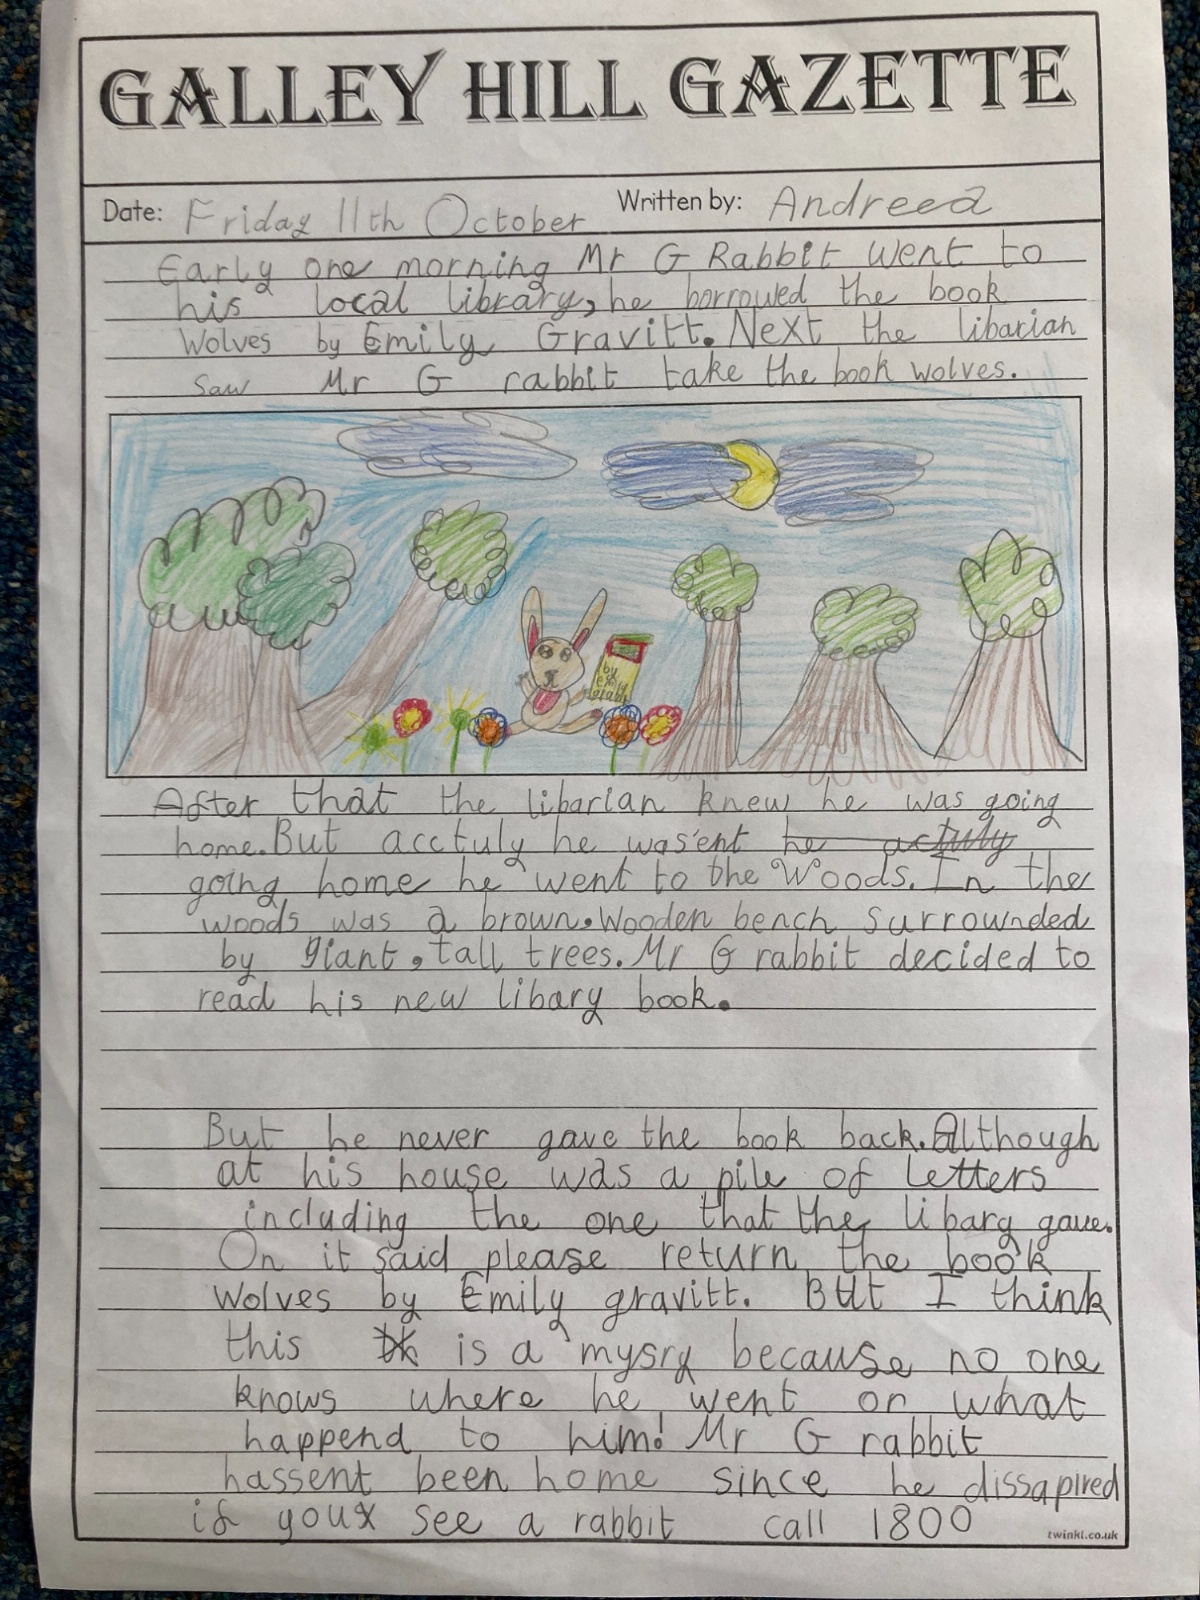 GALLEY HILL GAZETTE
Date: Friday 11th October Written by: Andreea
Early one morning Mr G Rabbit went to
his local library, he borrowed the book
Wolves by Emily Gravitt. Next the libarian
saw Mr G rabbit take the book wolves.
by
emily
gravit
After that the libarian knew he was going
home. But acctuly he was'ent he actuly
going home he went to the Woods. In the
woods was a brown, wooden bench surrownded
by giant, tall trees. Mr G rabbit decided to
read his new libary book.
But he never gave the book back. Although
at his house was a pile of letters
including the one that the libary gave.
On it said please return the book
wolves by Emily gravitt. But I think
this is a mysry because no one
knows where he went or what
happend to him! Mr G rabbit
hassent been home since he dissapired
if you see a rabbit call 1800
twinkl.co.uk